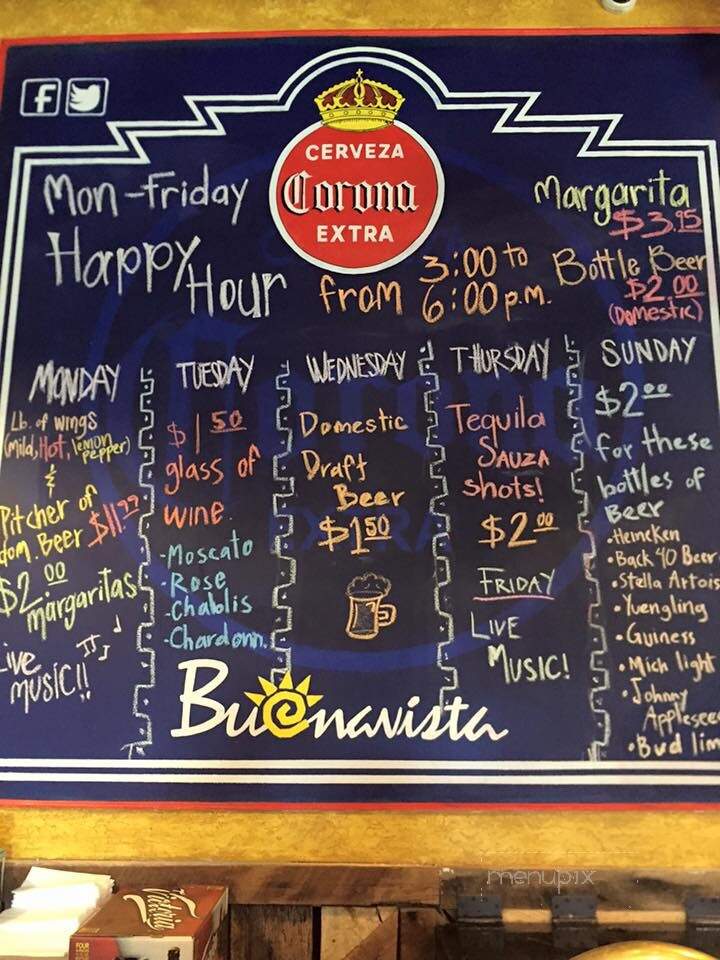 f
CERVEZA
Corona
EXTRA
Mon-Friday
Happy Hour from 3:00 to 6:00 p.m.
Margarita
$3.95
Bottle Beer
$2.00
(Domestic)
MONDAY
Lb. of wings
(mild, Hot, lemon pepper)
&
Pitcher of
dom. Beer $11.99
$2.00
margaritas
Live
MUSIC!!
TUESDAY
$1 50
glass of
wine
-Moscato
-Rose
-Chablis
-Chardonn.
WEDNESDAY
Domestic
Draft
Beer
$1 50
THURSDAY
Tequila
SAUZA
shots!
$2.00
FRIDAY
LIVE
MUSIC!
SUNDAY
$2.00
for these
bottles of
Beer
•Heineken
•Back 40 Beer
•Stella Artois
•Yuengling
•Guiness
•Mich light
•Johnny
Applesee
•Bud lim
Buenavista
menupix
Victoria
FOUR